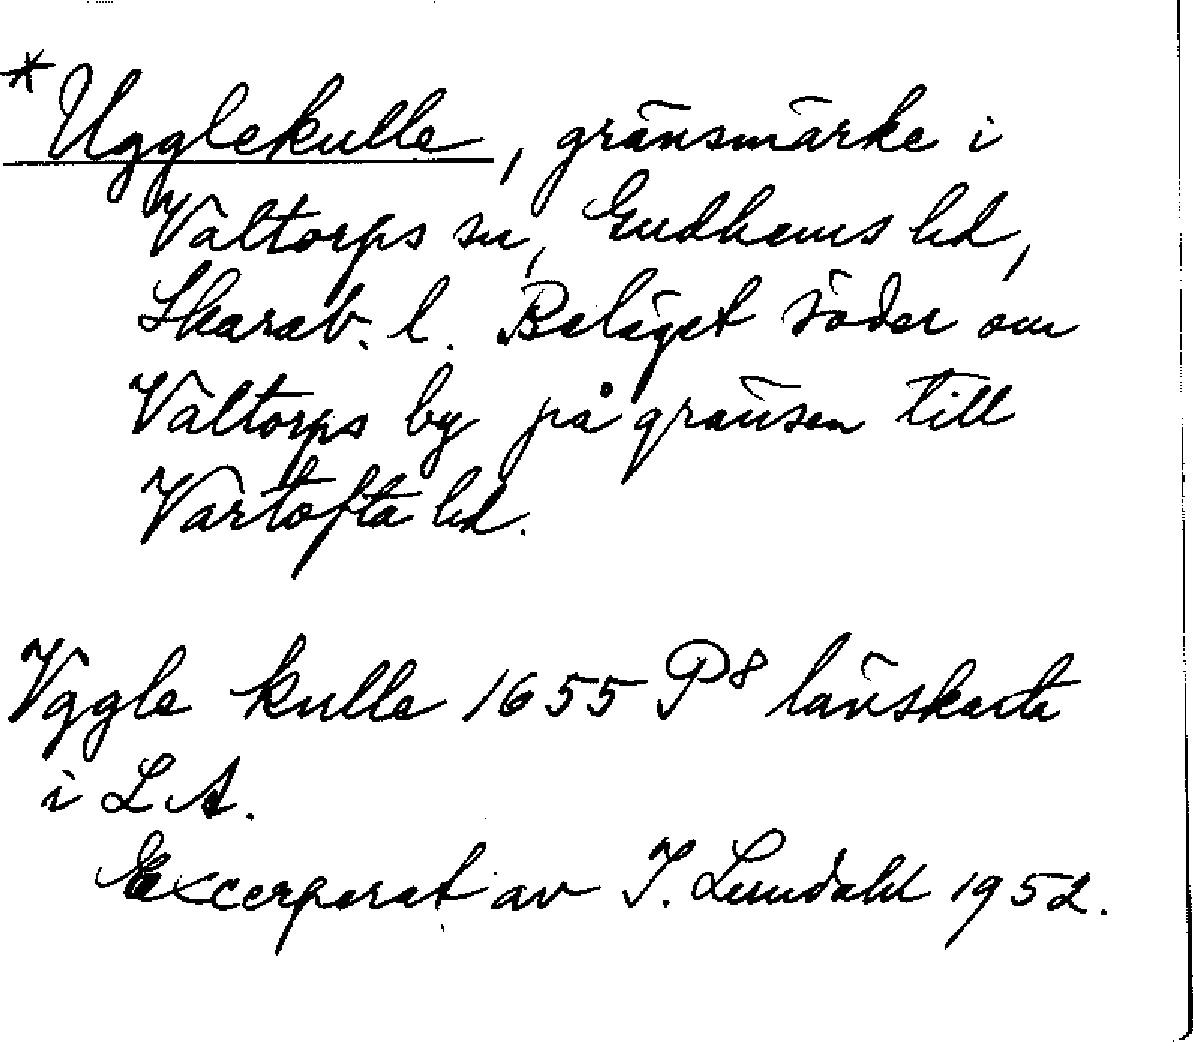 *Ugglekulle, gränsmärke i
Valtorps sn, Gudhems hd,
Skarab. l. Beläget söder om
Valtorps by på gränsen till
Vartofta hd.
Vggle kulle 1655 P8 länskarta
i LA.
Excerperat av I. Lundahl 1952.